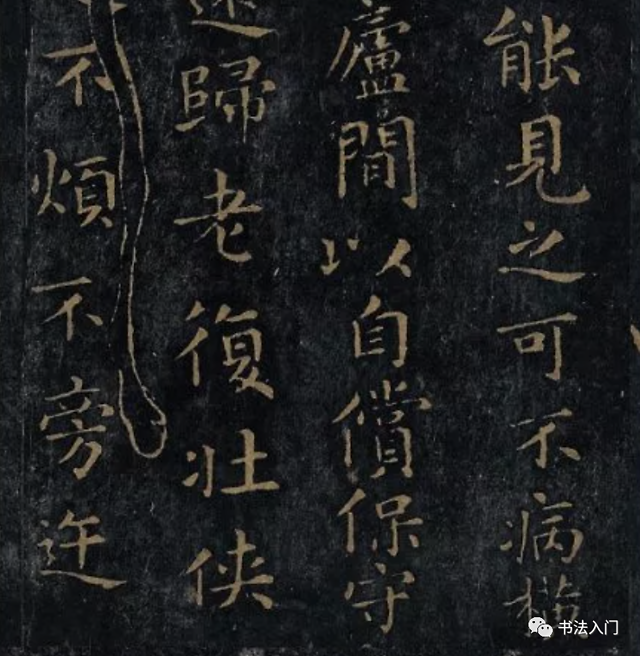 能見之可不病橫
廬間以自償保守
還歸老復壯俠
不煩不旁迕
书法入门